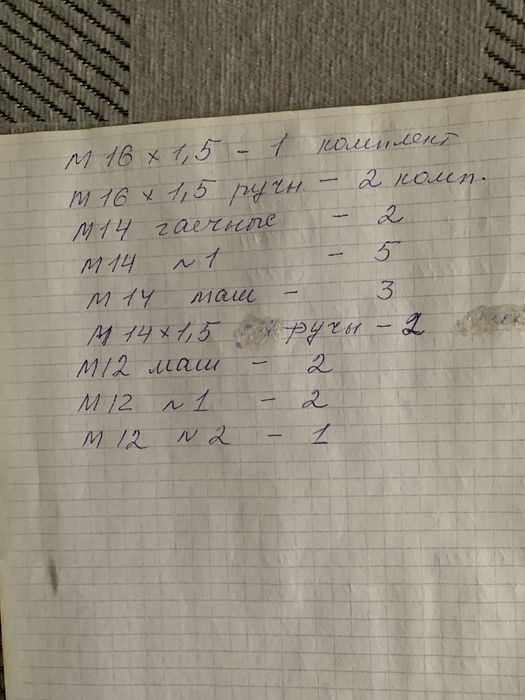 М 16 × 1,5 – 1 комплект
М 16 × 1,5 ручн – 2 комп.
М14 гаечные – 2
М14 №1 – 5
М 14 маш – 3
М 14×1,5 ручн – 2
М12 маш – 2
М12 №1 – 2
М 12 №2 – 1